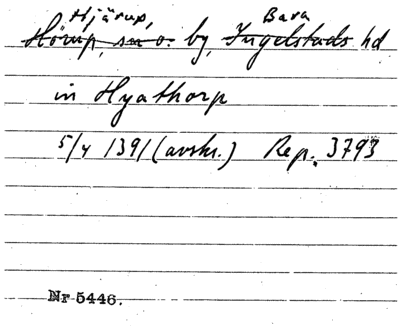 Hjärup, Bara
Hörup, sn o. by, Ingelstads hd
in Hyathorp
5/4 1391 (avskr.) Rep. 3793
Nr 5446.